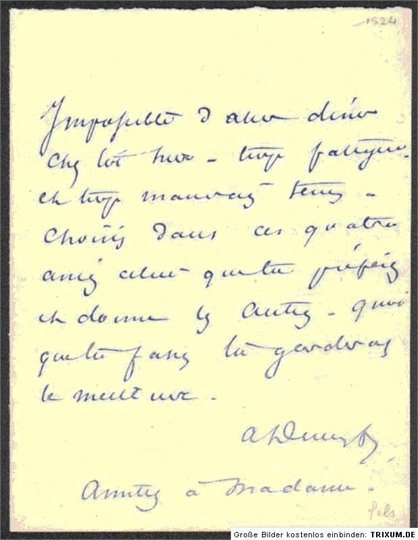 Impossible d aller diner
chez toi hier - trop fatigué
et trop mauvais temps -
Choisis dans ces quatre
amis celui que tu préfères
et donne les autres - quoi
que tu fasses tu garderas
le meilleur.
A Dumas f
Amitiés à Madame.
fils
Große Bilder kostenlos einbinden: TRIXUM.DE